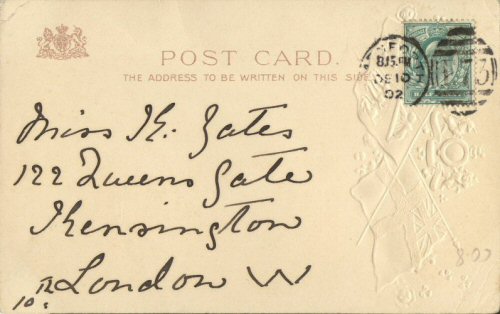 POST CARD.
THE ADDRESS TO BE WRITTEN ON THIS SIDE
8.15 PM
DE 10
02
Miss K. Yates
122 Queens Gate
Kensington
London W
8.00